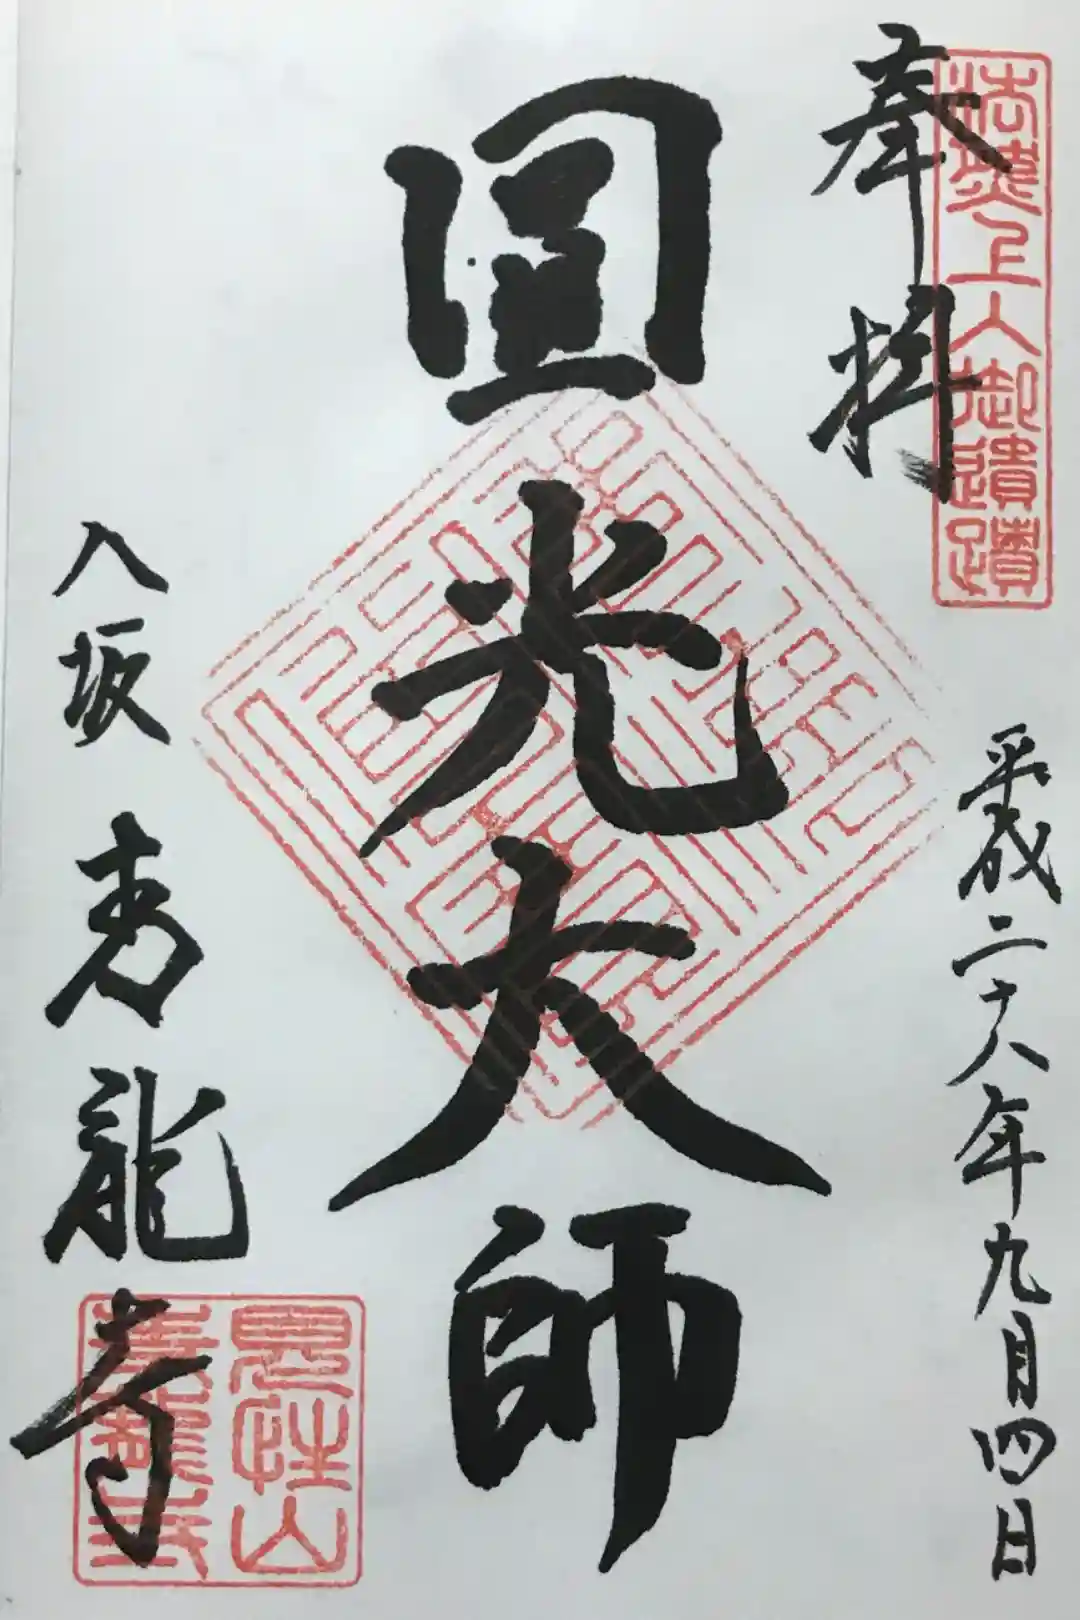 法然上人御遺蹟
奉拝
平成二十八年九月四日
圓光大師
八坂 青龍寺
見性山
青龍寺